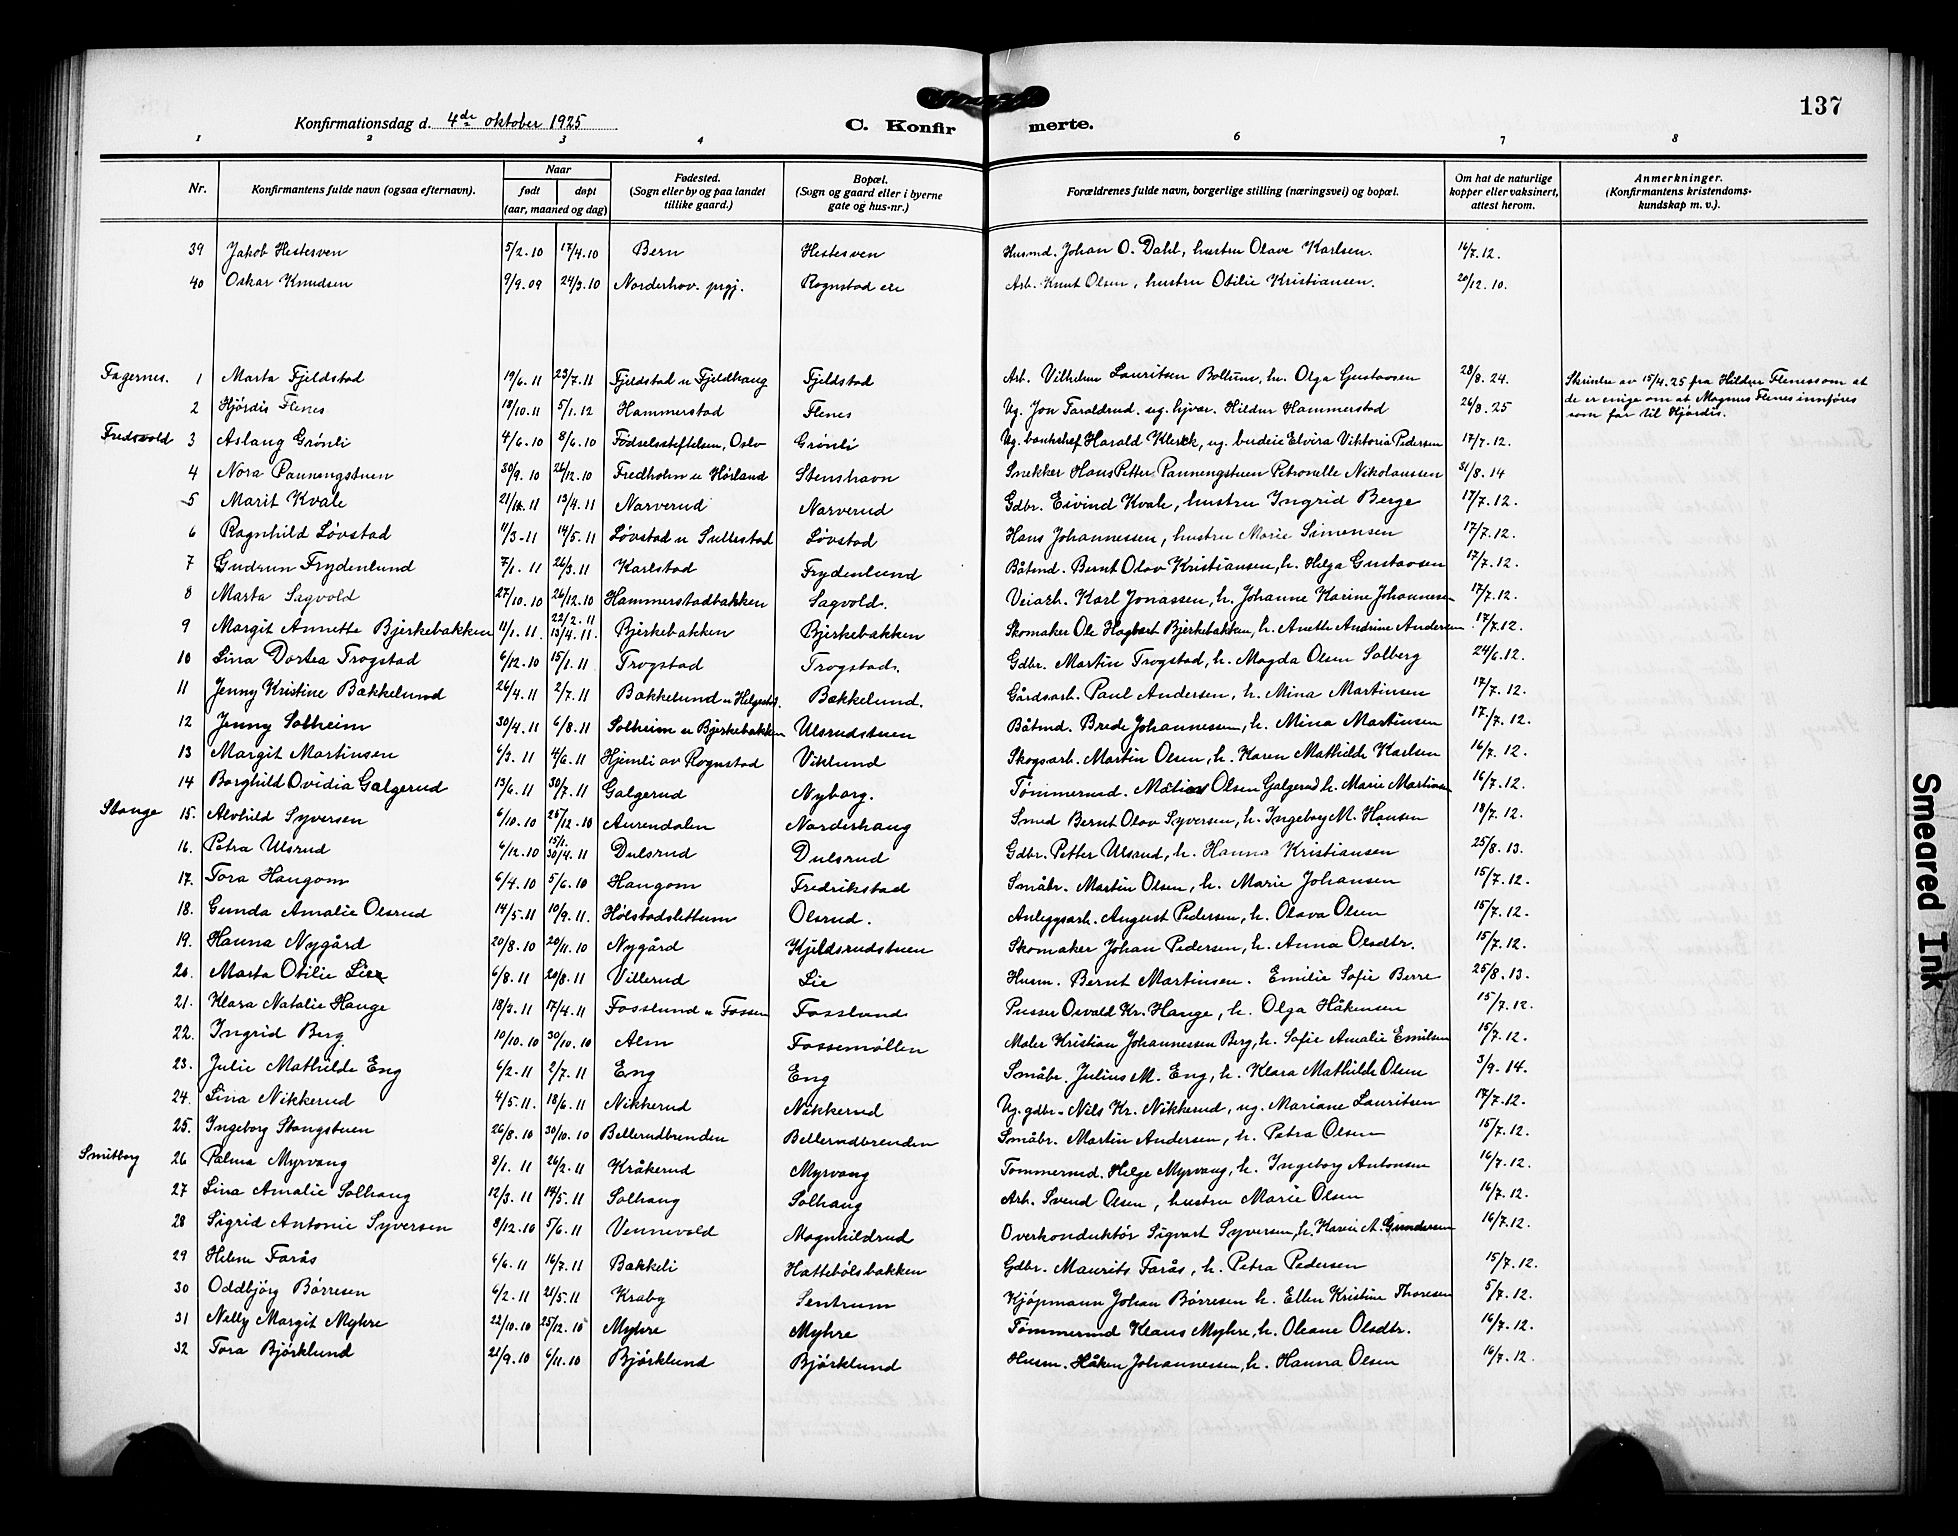 137
Konfirmationsdag d. 4de oktober 1925
C. Konfirmerte.
1 2 3 4 6 7 8
Nr. Konfirmantens fulde navn (ogsaa efternavn). Naar født døpt (aar, maaned og dag) Fødested. (Sogn eller by og paa landet tillike gaard.) Bopæl. (Sogn og gaard eller i byerne gate og hus-nr.) Forældrenes fulde navn, borgerlige stilling (næringsvei) og bopæl. Om hat de naturlige kopper eller vaksinert, attest herom. Anmerkninger. (Konfirmantens kristendoms-kundskap m. v.).
39 Jakob Hestesven 5/2.10 17/4.10 Bern Hestesven Husmd. Johan O. Dahl, hustru Olave Karlsen. 16/7.12.
40 Oskar Knudsen 9/9.09 24/3.10 Norderhov. prgj. Rognstad eie Arb. Knut Olsen, hustru Otilie Kristiansen. 20/12.10.
Fagernes. 1 Marta Fjeldstad 19/6.11 23/7.11 Fjeldstad u Fjeldhaug Fjeldstad Arb. Vilhelm Lauritsen Bollum, h. Olga Gustavsen 28/8.24. Skrivelse av 15/4.25 fra Hildur Flenes som at
2 Hjørdis Flenes 18/10.11 5/1.12 Hammerstad Flenes Ug. Jon Faraldrud. ug. hjvar. Hildur Hammerstad 26/8.25 de er enige om at Magnus Flenes innføres
som far til Hjørdis.
Fredsvold 3 Aslaug Grønli 4/6.10 8/6.10 Fødselsstiftelsen, Oslo Grønli Ug. bankchef Harald Klerck, ug. budeie Elvira Viktoria Pedersen 17/7.12.
4 Nora Pannengstuen 30/9.10 26/12.10 Fredholm u Hørland Stenshavn Snekker Hans Petter Pannengstuen Petronelle Nikolaussen 31/8.14
5 Marit Kvale 13/4.11 Narverud Narverud Gdbr. Eivind Kvale, hustru Ingrid Berge 17/7.12.
6 Ragnhild Løvstad 11/3.11 14/5.11 Løvstad u Sullestad Løvstad Hans Johannessen, hustru Marie Simensen 17/7.12.
7 Gudrun Frydenlund 7/1.11 26/3.11 Karlstad Frydenlund Båtmd. Bernt Olav Kristiansen, h. Helga Gustavsen 17/7.12.
8 Marta Sagvold 27/10.10 26/12.10 Hammerstadbakken Sagvold. Veiarb. Karl Jonassen, h. Johanne Karine Johannesen 17/7.12.
9 Margit Annette Bjerkebakken 11/1.11. 22/2.11 13/4.11. Bjerkebakken Bjerkebakken Skomaker Ole Hagbart Bjerkebakken, h. Anette Andrine Andersen 17/7.12.
10 Lina Dortea Trogstad 6/12.10 15/1.11 Trogstad Trogstad. Gdbr. Martin Trogstad, h. Magda Olsen Solberg 24/6.12.
11 Jenny Kristine Bakkelund 26/4.11 2/7.11 Bakkelund u Helgestd. Bakkelund. Gårdsarb. Paul Andersen, h. Mina Martinsen 17/7.12.
12 Jenny Solheim 30/4.11 6/8.11 Solheim u Bjerkebakken Ulsrudstuen Båtmd. Brede Johannessen, h. Mina Martinsen 17/7.12.
13 Margit Martinsen 6/3.11 4/6.11 Hjemli av Rognstad Viklund Skogsarb. Martin Olsen, h. Karen Mathilde Karlsen 16/7.12.
14 Borghild Ovidia Galgerud 13/6.11 30/7.11 Galgerud Nyborg. Tømmermd. Matias Olsen Galgerud h. Marie Martinsen 16/7.12.
Stange 15. Alvhild Syversen 6/10.10 25/12.10 Aurendalen Norderhaug Smed Bernt Olav Syversen, h. Ingeborg M. Hansen 18/7.12.
16. Petra Ulsrud 6/12.10 15/1. 30/4.11 Dulsrud Dulsrud Gdbr. Petter Ulsrud, h. Hanna Kristiansen 25/8.13.
17. Tora Haugom 6/4.10 5/6.10 Haugom Fredrikstad Småbr. Martin Olsen, h. Marie Johansen 15/7.12.
18. Gunda Amalie Olsrud 14/5.11 10/9.11. Hølstadslettum Olsrud. Anleggsarb. August Pedersen, h. Olava Olsen 15/7.12.
19. Hanna Nygård 20/8.10 20/11.10 Nygård Kjeldsrudstuen Skomaker Johan Pedersen, h. Anna Olsdtr. 15/7.12.
20. Marta Otilie Lie 6/8.11 20/8.11 Villerud Lie Husm. Bernt Martinsen. Emilie Sofie Berre 25/8.13.
21. Klara Natalie Hauge 18/3.11 17/4.11 Fosslund u Fossen Fosslund Pusser Osvald Kr. Hauge, h. Olga Håkensen 15/7.12.
22. Ingrid Berg 10/10.10 30/10.10 Alm Fossemøllen Maler Kristian Johannessen Berg, h. Sofie Amalie Emilsen 15/7.12.
23. Julie Mathilde Eng 6/2.11 2/7.11 Eng Eng Småbr. Julius M. Eng, h. Klara Mathilde Olsen 3/9.14.
24. Lina Nikkerud 4/5.11. 18/6.11 Nikkerud Nikkerud Ug. gdbr. Nils Kr. Nikkerud, ug. Mariane Lauritsen 17/7.12.
25. Ingeborg Stangstuen 26/8.10 30/10.10 Bellerudbrenden Bellerudbrenden Småbr. Martin Andersen, h. Petra Olsen 15/7.12.
Smitborg 26 Palma Myrvang 8/1.11 26/2.11 Kråkerud Myrvang Tømmermd. Helge Myrvang, h. Ingeborg Antonsen 16/7.12.
27 Lina Amalie Solhaug 12/3.11 14/5.11 Solhaug Solhaug Arb. Svend Olsen, hustru Marie Olsen 16/7.12.
28 Sigrid Antonie Syversen 8/12.10 5/6.11 Vennevold Magnhildrud Overkonduktør Sigvart Syversen, h. Karen A. Gundersen 16/7.12.
29 Helene Farås 6/6.11 16/7.11 Bakkeli Hattebølsbakken Gdbr. Maurits Farås, h. Petra Pedersen 15/7.12.
30 Oddbjørg Børresen 6/2.11 21/5.11 Kraby Sentrum Kjøpmann Johan Børresen h. Ellen Kristine Thoresen 5/7.12.
31 Nelly Margit Myhre 22/10.10 25/12.10 Myhre Myhre Tømmermd Klaus Myhre, h. Oleane Olsdtr. 16/7.12.
32 Tora Bjørklund 21/9.10 6/11.10 Bjørklund Bjørklund Husm. Håken Johannessen, h. Hanna Olsen 16/7.12.
Smeared Ink